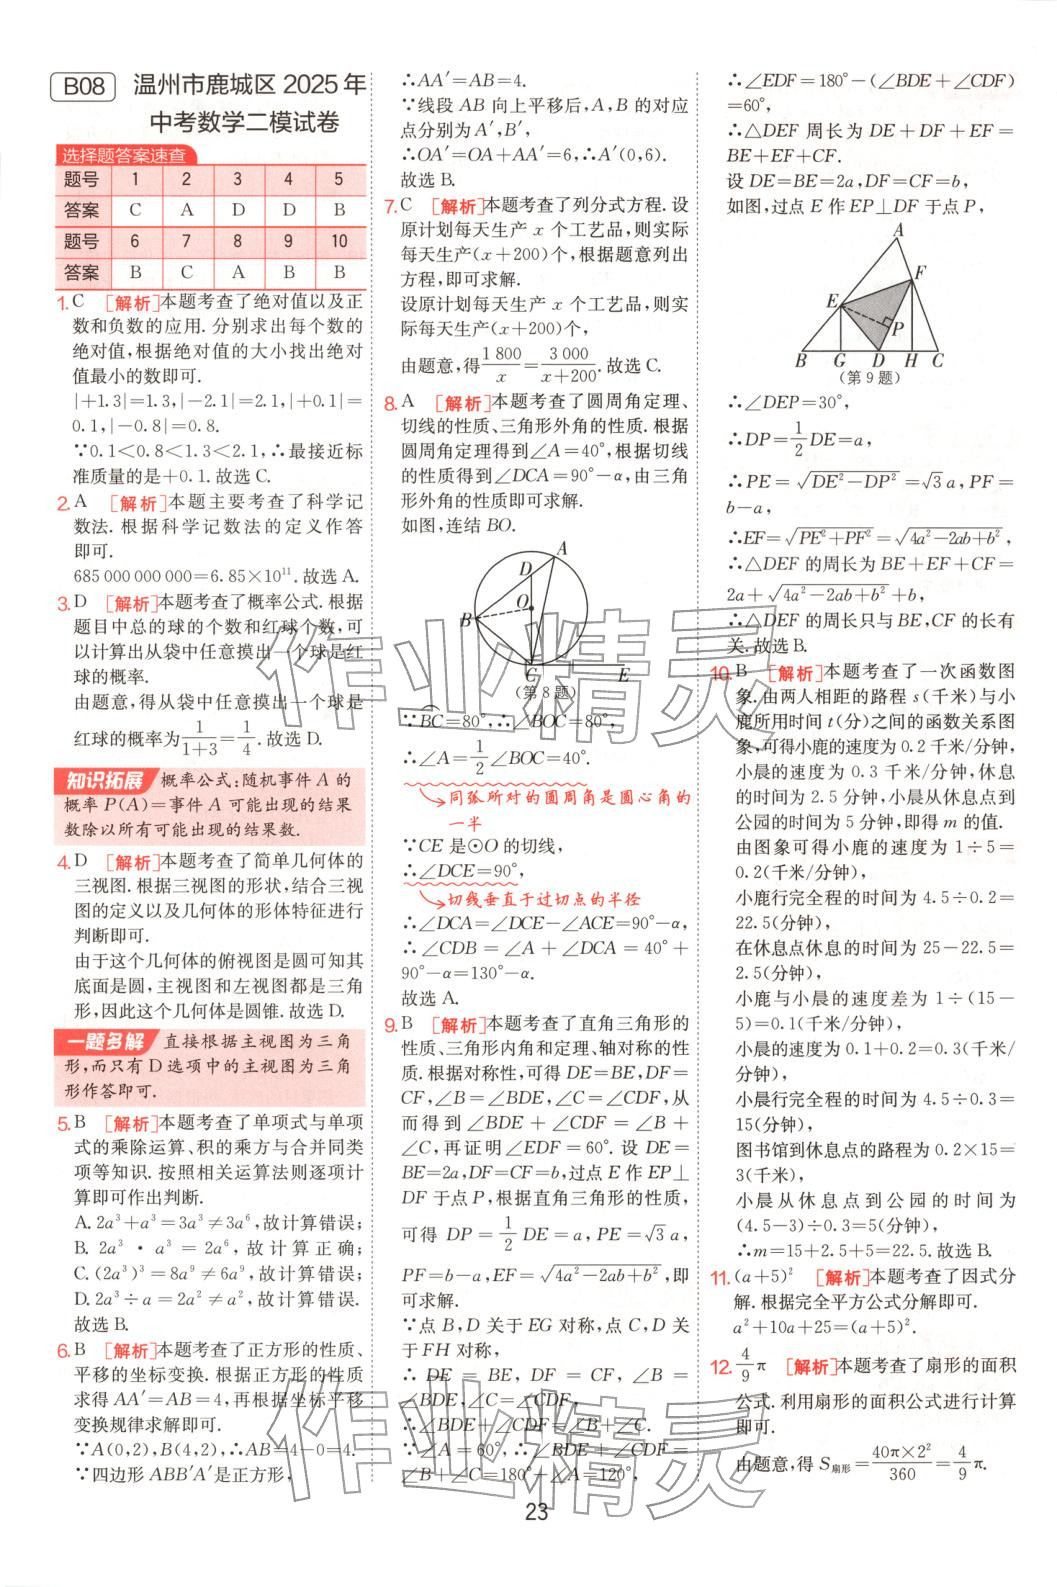 B08 温州市鹿城区 2025 年
中考数学二模试卷
选择题答案速查
题号 1 2 3 4 5
答案 C A D D B
题号 6 7 8 9 10
答案 B C A B B
1. C [解析]本题考查了绝对值以及正
数和负数的应用. 分别求出每个数的
绝对值,根据绝对值的大小找出绝对
值最小的数即可.
|+1.3|=1.3,|-2.1|=2.1,|+0.1|=
0.1,|-0.8|=0.8.
∵0.1<0.8<1.3<2.1,∴最接近标
准质量的是+0.1. 故选 C.
2. A [解析]本题主要考查了科学记
数法. 根据科学记数法的定义作答
即可.
685 000 000 000=6.85×10¹¹. 故选 A.
3. D [解析]本题考查了概率公式. 根据
题目中总的球的个数和红球个数,可
以计算出从袋中任意摸出一个球是红
球的概率.
由题意,得从袋中任意摸出一个球是
红球的概率为1/(1+3)=1/4. 故选 D.
知识拓展 概率公式:随机事件 A 的
概率 P(A)=事件 A 可能出现的结果
数除以所有可能出现的结果数.
4. D [解析]本题考查了简单几何体的
三视图. 根据三视图的形状,结合三视
图的定义以及几何体的形体特征进行
判断即可.
由于这个几何体的俯视图是圆可知其
底面是圆,主视图和左视图都是三角
形,因此这个几何体是圆锥. 故选 D.
一题多解 直接根据主视图为三角
形,而只有 D 选项中的主视图为三角
形作答即可.
5. B [解析]本题考查了单项式与单项
式的乘除运算、积的乘方与合并同类
项等知识. 按照相关运算法则逐项计
算即可作出判断.
A. 2a³+a³=3a³≠3a⁶,故计算错误;
B. 2a³ · a³ = 2a⁶,故计算正确;
C. (2a³)³=8a⁹≠6a⁹,故计算错误;
D. 2a³÷a=2a²≠a²,故计算错误.
故选 B.
6. B [解析]本题考查了正方形的性质、
平移的坐标变换. 根据正方形的性质
求得 AA′=AB=4,再根据坐标平移
变换规律求解即可.
∵A(0,2),B(4,2),∴AB=4-0=4.
∵四边形 ABB′A′是正方形,
∴AA′=AB=4.
∵线段 AB 向上平移后,A,B 的对应
点分别为A′,B′,
∴OA′=OA+AA′=6,∴A′(0,6).
故选 B.
7. C [解析]本题考查了列分式方程. 设
原计划每天生产 x 个工艺品,则实际
每天生产(x+200)个,根据题意列出
方程,即可求解.
设原计划每天生产 x 个工艺品,则实
际每天生产(x+200)个,
由题意,得1 800/x=3 000/(x+200). 故选 C.
8. A [解析]本题考查了圆周角定理、
切线的性质、三角形外角的性质. 根据
圆周角定理得到∠A=40°,根据切线
的性质得到∠DCA=90°-α,由三角
形外角的性质即可求解.
如图,连结 BO.
A
D
O
B
C E
(第 8 题)
∵BC=80°,∴∠BOC=80°,
∴∠A=1/2∠BOC=40°.
同弧所对的圆周角是圆心角的
一半
∵CE 是⊙O 的切线,
∴∠DCE=90°,
切线垂直于过切点的半径
∴∠DCA=∠DCE-∠ACE=90°-α,
∴∠CDB = ∠A + ∠DCA = 40° +
90°-α=130°-α.
故选 A.
9. B [解析]本题考查了直角三角形的
性质、三角形内角和定理、轴对称的性
质. 根据对称性,可得 DE=BE,DF=
CF,∠B=∠BDE,∠C=∠CDF,从
而得到∠BDE + ∠CDF = ∠B +
∠C,再证明∠EDF = 60°. 设 DE=
BE=2a,DF=CF=b,过点 E 作 EP⊥
DF 于点 P,根据直角三角形的性质,
可得 DP = 1/2 DE = a,PE = √3 a,
PF=b-a,EF=√(4a²-2ab+b²),即
可求解.
∵点 B,D 关于 EG 对称,点 C,D 关
于 FH 对称,
∴ DE = BE, DF = CF, ∠B =
∠BDE,∠C=∠CDF,
∴∠BDE+∠CDF=∠B+∠C.
∵∠A = 60°,∴∠BDE + ∠CDF =
∠B+∠C=180°-∠A=120°,
∴∠EDF=180°-(∠BDE+∠CDF)
=60°,
∴△DEF 周长为 DE+DF+EF=
BE+EF+CF.
设 DE=BE=2a,DF=CF=b,
如图,过点 E 作EP⊥DF 于点 P,
A
F
E
P
B G D H C
(第 9 题)
∴∠DEP=30°,
∴DP=1/2DE=a,
∴PE = √(DE²-DP²) =√3 a,PF =
b-a,
∴EF=√(PE²+PF²)=√(4a²-2ab+b²),
∴△DEF 的周长为 BE+EF+CF=
2a+√(4a²-2ab+b²)+b,
∴△DEF 的周长只与 BE,CF 的长有
关. 故选 B.
10. B [解析]本题考查了一次函数图
象. 由两人相距的路程 s(千米)与小
鹿所用时间 t(分)之间的函数关系图
象,可得小鹿的速度为 0.2 千米/分钟,
小晨的速度为 0.3 千米/分钟,休息
的时间为 2.5 分钟,小晨从休息点到
公园的时间为 5 分钟,即得 m 的值.
由图象可得小鹿的速度为 1÷5=
0.2(千米/分钟),
小鹿行完全程的时间为 4.5÷0.2=
22.5(分钟),
在休息点休息的时间为 25-22.5=
2.5(分钟),
小鹿与小晨的速度差为 1÷(15-
5)=0.1(千米/分钟),
小晨的速度为 0.1+0.2=0.3(千米/
分钟),
小晨行完全程的时间为 4.5÷0.3=
15(分钟),
图书馆到休息点的路程为 0.2×15=
3(千米),
小晨从休息点到公园的时间为
(4.5-3)÷0.3=5(分钟),
∴m=15+2.5+5=22.5. 故选 B.
11. (a+5)² [解析]本题考查了因式分
解. 根据完全平方公式分解即可.
a²+10a+25=(a+5)².
12. 4/9π [解析]本题考查了扇形的面积
公式. 利用扇形的面积公式进行计算
即可.
由题意,得 S扇形=40π×2²/360=4/9π.
23
作业精灵
作业精灵